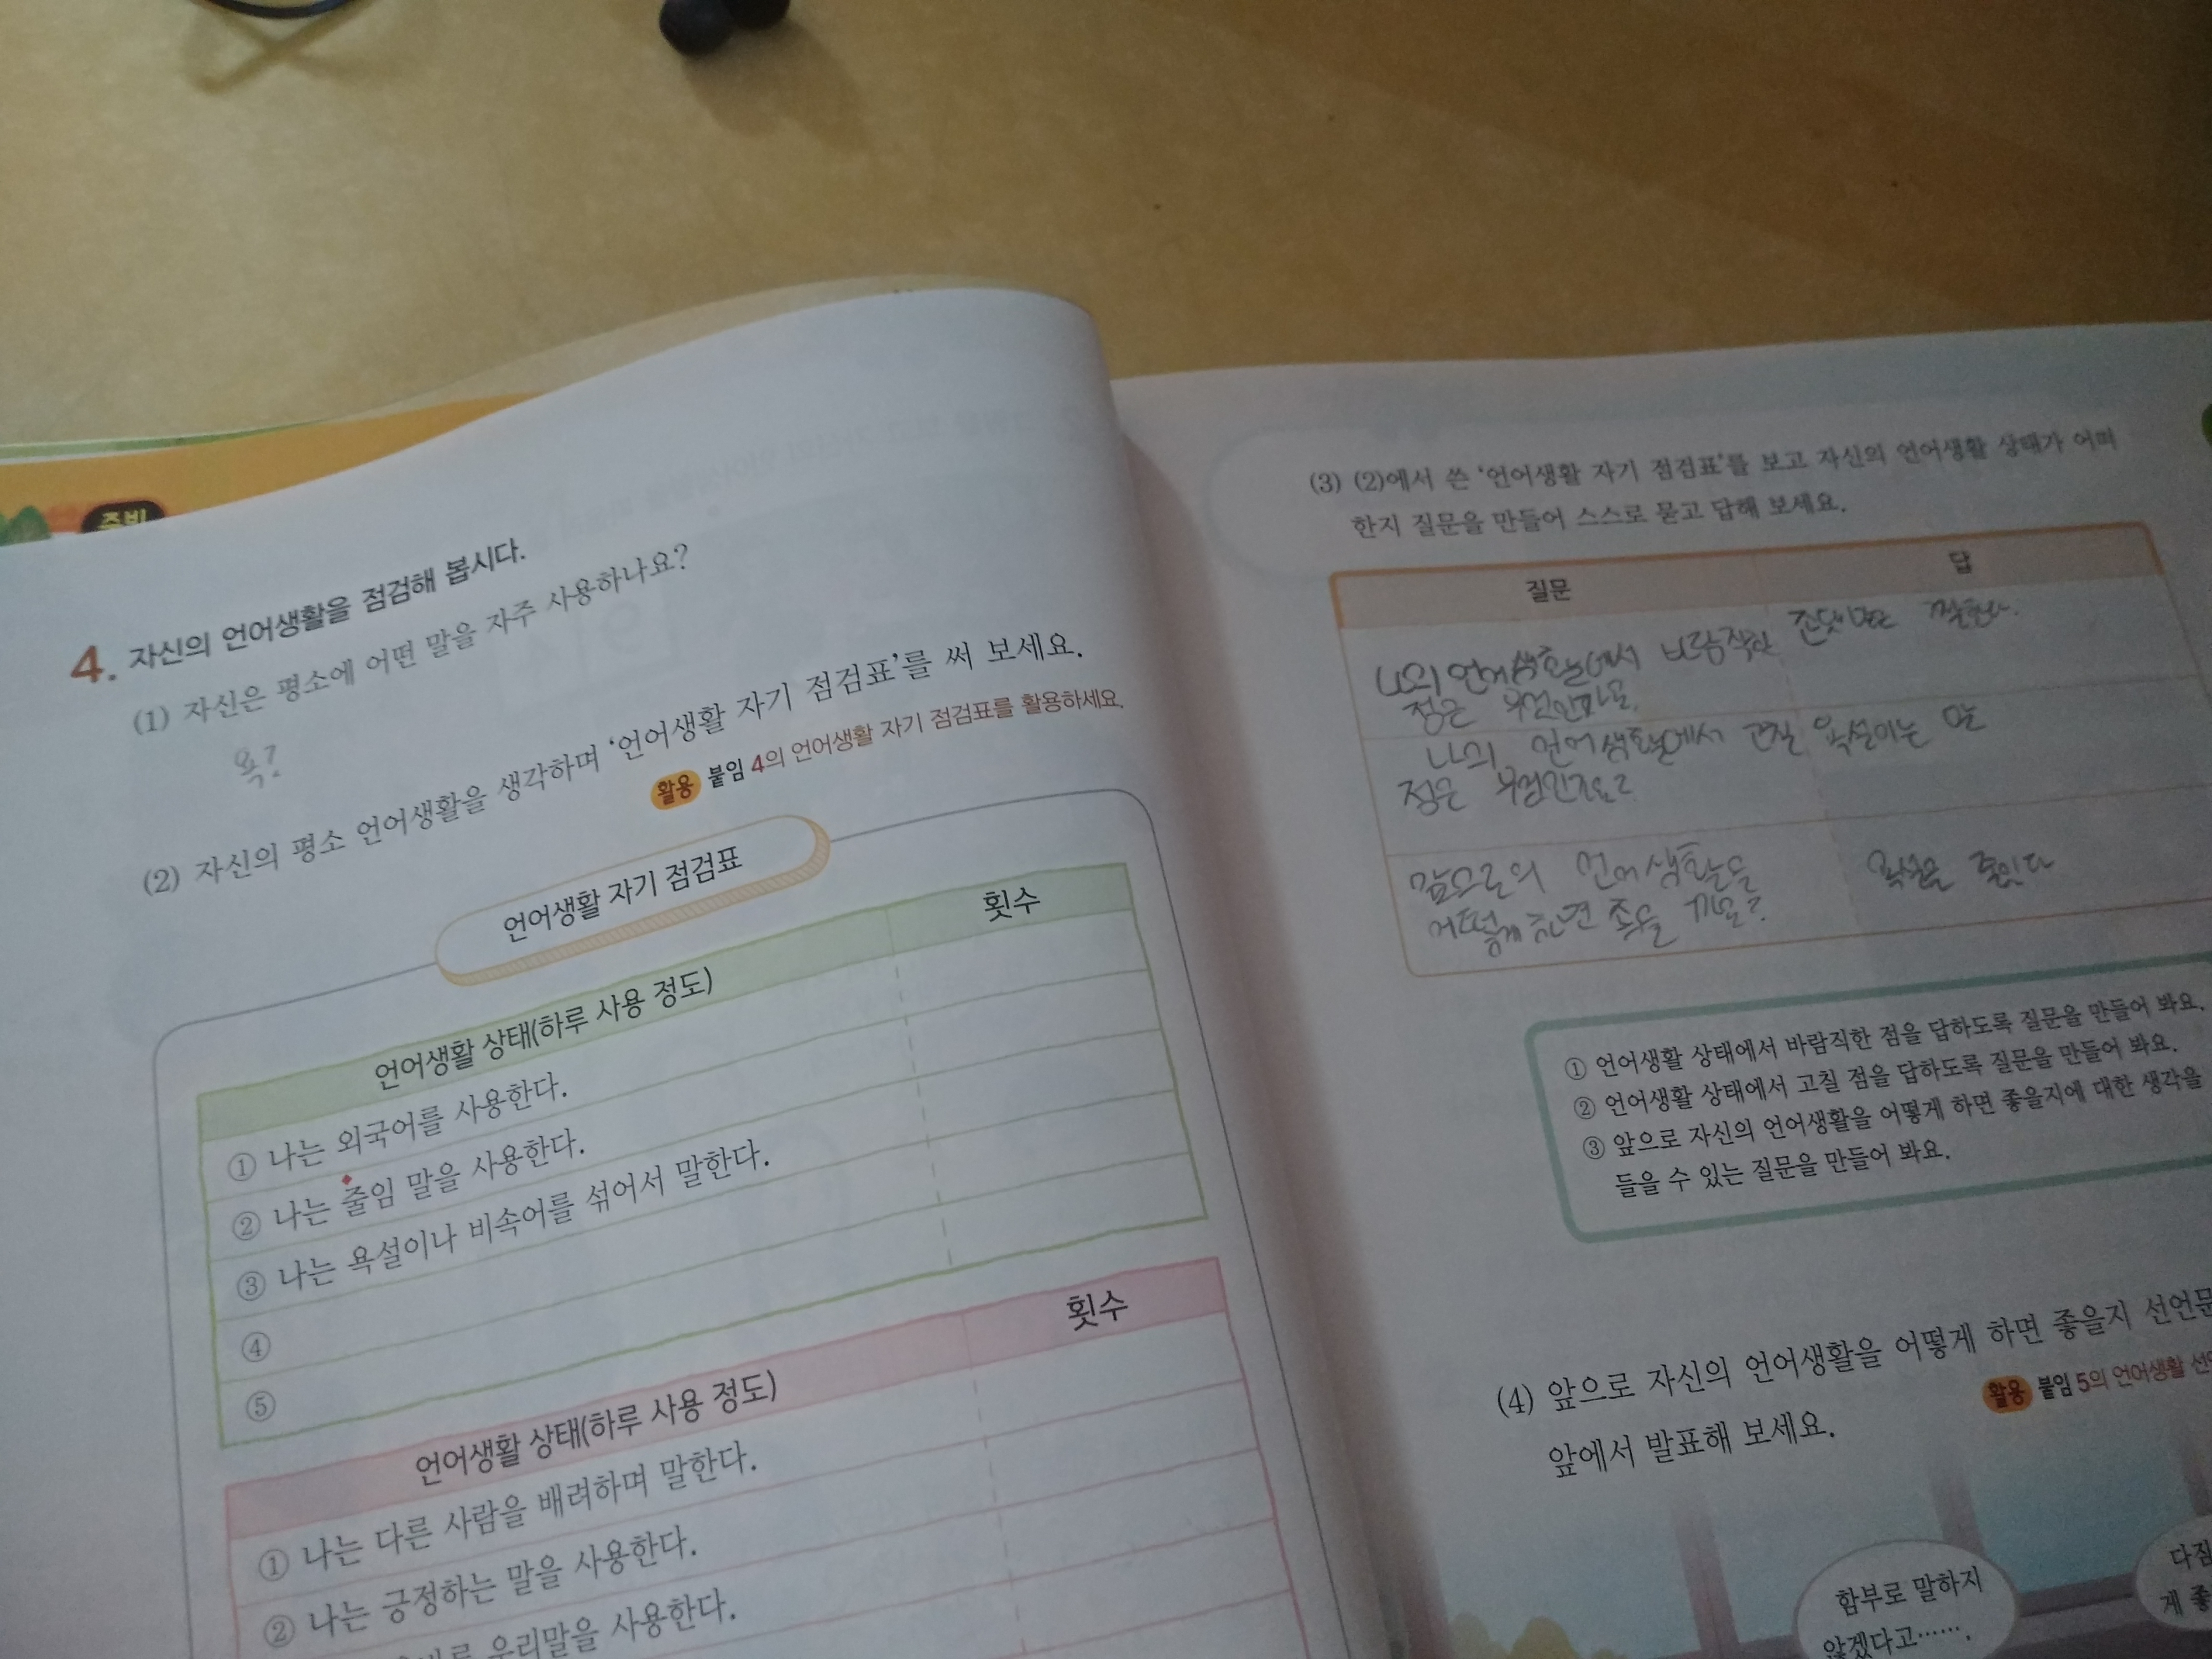 준비
4. 자신의 언어생활을 점검해 봅시다.
(1) 자신은 평소에 어떤 말을 자주 사용하나요?
욕?
(2) 자신의 평소 언어생활을 생각하며 '언어생활 자기 점검표'를 써 보세요.
활용 붙임 4의 언어생활 자기 점검표를 활용하세요.
언어생활 자기 점검표
언어생활 상태(하루 사용 정도) 횟수
① 나는 외국어를 사용한다.
② 나는 줄임 말을 사용한다.
③ 나는 욕설이나 비속어를 섞어서 말한다.
④
⑤
언어생활 상태(하루 사용 정도) 횟수
① 나는 다른 사람을 배려하며 말한다.
② 나는 긍정하는 말을 사용한다.
우리말을 사용한다.
(3) (2)에서 쓴 '언어생활 자기 점검표'를 보고 자신의 언어생활 상태가 어떠
한지 질문을 만들어 스스로 묻고 답해 보세요.
질문 답
나의 언어생활에서 바람직한 존댓말은
점은 무엇인가요.
나의 언어생활에서 고칠 욕설이는
점은 무엇인가요?
앞으로의 언어생활을 욕설을 줄인다
어떻게 하면 좋을 까요?
① 언어생활 상태에서 바람직한 점을 답하도록 질문을 만들어 봐요.
② 언어생활 상태에서 고칠 점을 답하도록 질문을 만들어 봐요.
③ 앞으로 자신의 언어생활을 어떻게 하면 좋을지에 대한 생각을
들을 수 있는 질문을 만들어 봐요.
(4) 앞으로 자신의 언어생활을 어떻게 하면 좋을지 선언문
활용 붙임 5의 언어생활
앞에서 발표해 보세요.
함부로 말하지
않겠다고…….
다짐
게 좋